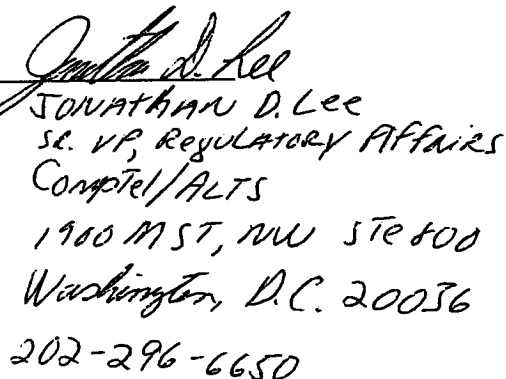 Jonathan D. Lee
JONATHAN D. Lee
SR. VP, Regulatory Affairs
Comptel/ALTS
1900 M ST, NW STE 800
Washington, D.C. 20036
202-296-6650